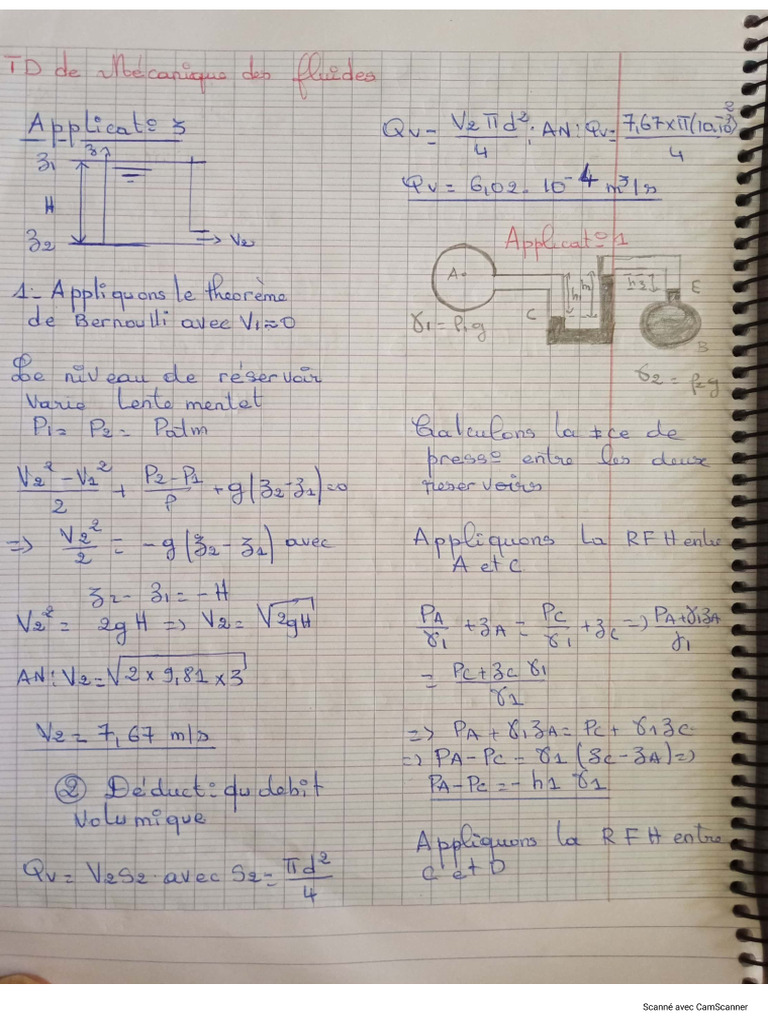 TD de Mécanique des fluides
Applicat° 3
z1
z2
H
z2
V2
1- Appliquons le theorème
de Bernoulli avec V1≈0
Le niveau de réservoir
varie lentementet
P1= P2= Patm
(V2² - V1²)/2 + (P2-P1)/ρ + g(z2-z1)=0
=> V2²/2 = -g(z2-z1) avec
z2- z1 = -H
V2² = 2gH => V2= √2gH
AN: V2= √2 x 9,81 x 3
V2 = 7,67 m/s
② Déduct: du debit
volumique
Qv= V2S2 avec S2= πd²/4
Qv= V2πd²/4 ; AN: Qv= 7,67xπ(10.10⁻³)²/4
Qv = 6,02. 10⁻⁴ m³/s
Applicat° 1
A
C
h1
h2
h3
E
B
γ1 = ρ1g
γ2 = ρ2g
Calculons la ≠ce de
press° entre les deux
reservoirs
Appliquons la RFH entre
A et C
PA/γ1 + zA = PC/γ1 + zC => (PA+γ1zA)/γ1
= (PC+zC γ1)/γ1
=> PA + γ1zA = PC + γ1zC
=> PA-PC = γ1 (zC-zA) =>
PA-PC = -h1 γ1
Appliquons la RFH entre
C et D
Scanné avec CamScanner